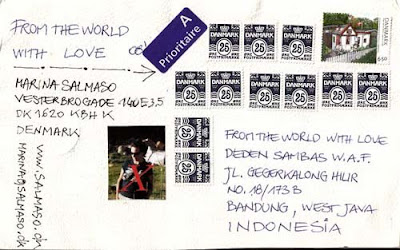 FROM THE WORLD
WITH LOVE
MARINA SALMASO
VESTERBROGADE 140E 3,5
DK 1620 KBH K
DENMARK
www.SALMASO.dk
MARINA@SALMASO.dk
A
Prioritaire
DANMARK
DANMARK
25
DANMARK
25
DANMARK
25
DANMARK
25
DANMARK
25
DANMARK
25
DANMARK
25
DANMARK
25
DANMARK
25
DANMARK
25
DANMARK
25
DANMARK
25
FROM THE WORLD WITH LOVE
DEDEN SAMBAS W.A.F.
JL. GEGERKALONG HILIR
NO. 18/173 B
BANDUNG, WEST JAVA
INDONESIA